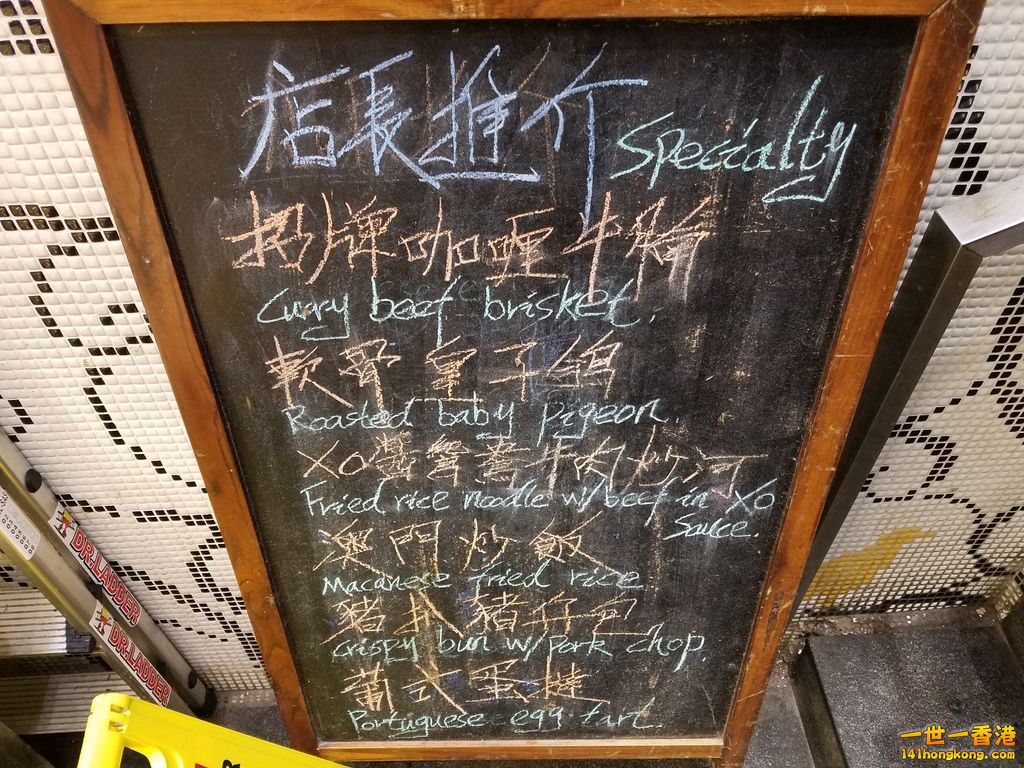 店長推介 Specialty
招牌咖喱牛腩
Curry beef brisket.
軟骨皇子鴿
Roasted baby pigeon.
XO醬
牛肉炒河
Fried rice noodle w/beef in XO
Sauce.
澳門炒飯
Macanese fried rice
豬扒豬仔包
Crispy bun w/Pork chop.
葡式蛋撻
Portuguese egg tart
DR.LADDER
DR.LADDER
一世一香港
141hongkong.com